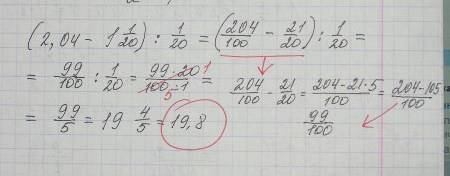 (2,04 - 1 1/20) : 1/20 = (204/100 - 21/20) : 1/20 =
= 99/100 : 1/20 = 99·20 1/100·1 5 =
204/100 - 21/20 = 204-21·5/100 = 204-105/100
= 99/5 = 19 4/5 = 19,8
99/100